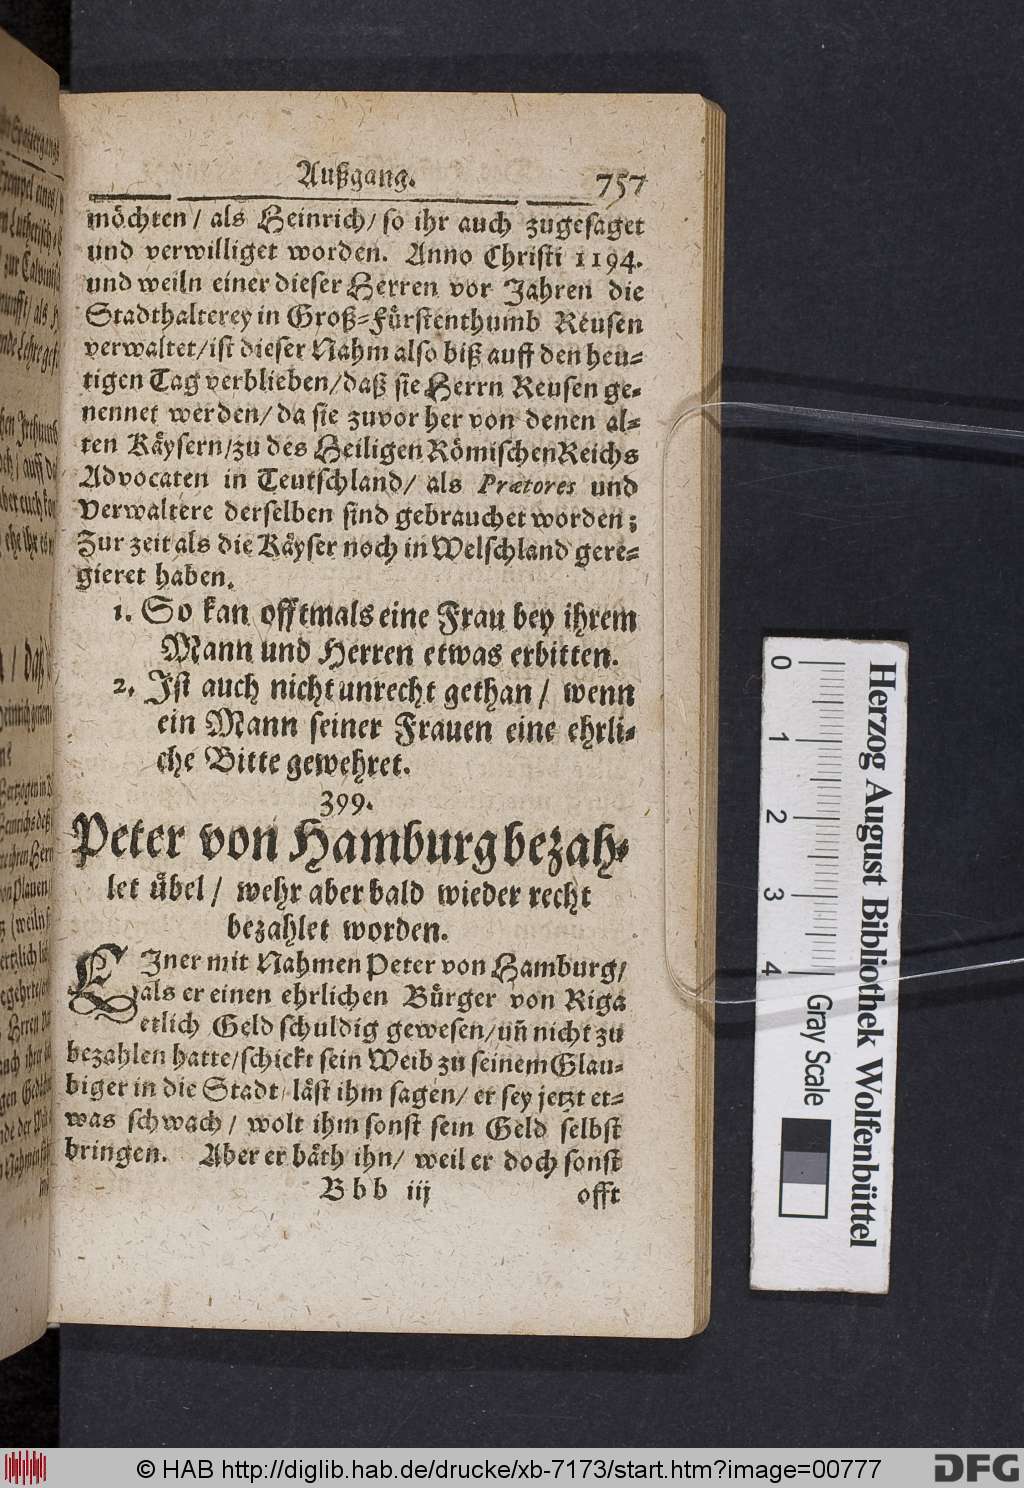 Außgang. 757
möchten/ als Heinrich/ so ihr auch zugesaget
und verwilliget worden. Anno Christi 1194.
und weiln einer dieser Herren vor Jahren die
Stadthalterey in Groß-Fürstenthumb Reusen
verwaltet/ ist dieser Nahm also biß auff den heu-
tigen Tag verblieben/ daß sie Herrn Reusen ge-
nennet werden/ da sie zuvor her von denen al-
ten Käysern/ zu des Heiligen Römischen Reichs
Advocaten in Teutschland/ als Prætores und
Verwaltere derselben sind gebrauchet worden;
Zur zeit als die Käyser noch in Welschland gere-
gieret haben.
1. So kan offtmals eine Frau bey ihrem
Mann und Herren etwas erbitten.
2. Ist auch nicht unrecht gethan/ wenn
ein Mann seiner Frauen eine ehrli-
che Bitte gewehret.
399.
Peter von Hamburg bezah-
let übel/ wehr aber bald wieder recht
bezahlet worden.
EIner mit Nahmen Peter von Hamburg/
als er einen ehrlichen Bürger von Riga
etlich Geld schuldig gewesen/ uñ nicht zu
bezahlen hatte/ schickt sein Weib zu seinem Glau-
biger in die Stadt/ läst ihm sagen/ er sey jetzt et-
was schwach/ wolt ihm sonst sein Geld selbst
bringen. Aber er bäth ihn/ weil er doch sonst
Bbb iij offt
0 1 2 3 4
Gray Scale
Herzog August Bibliothek Wolfenbüttel
© HAB http://diglib.hab.de/drucke/xb-7173/start.htm?image=00777
DFG